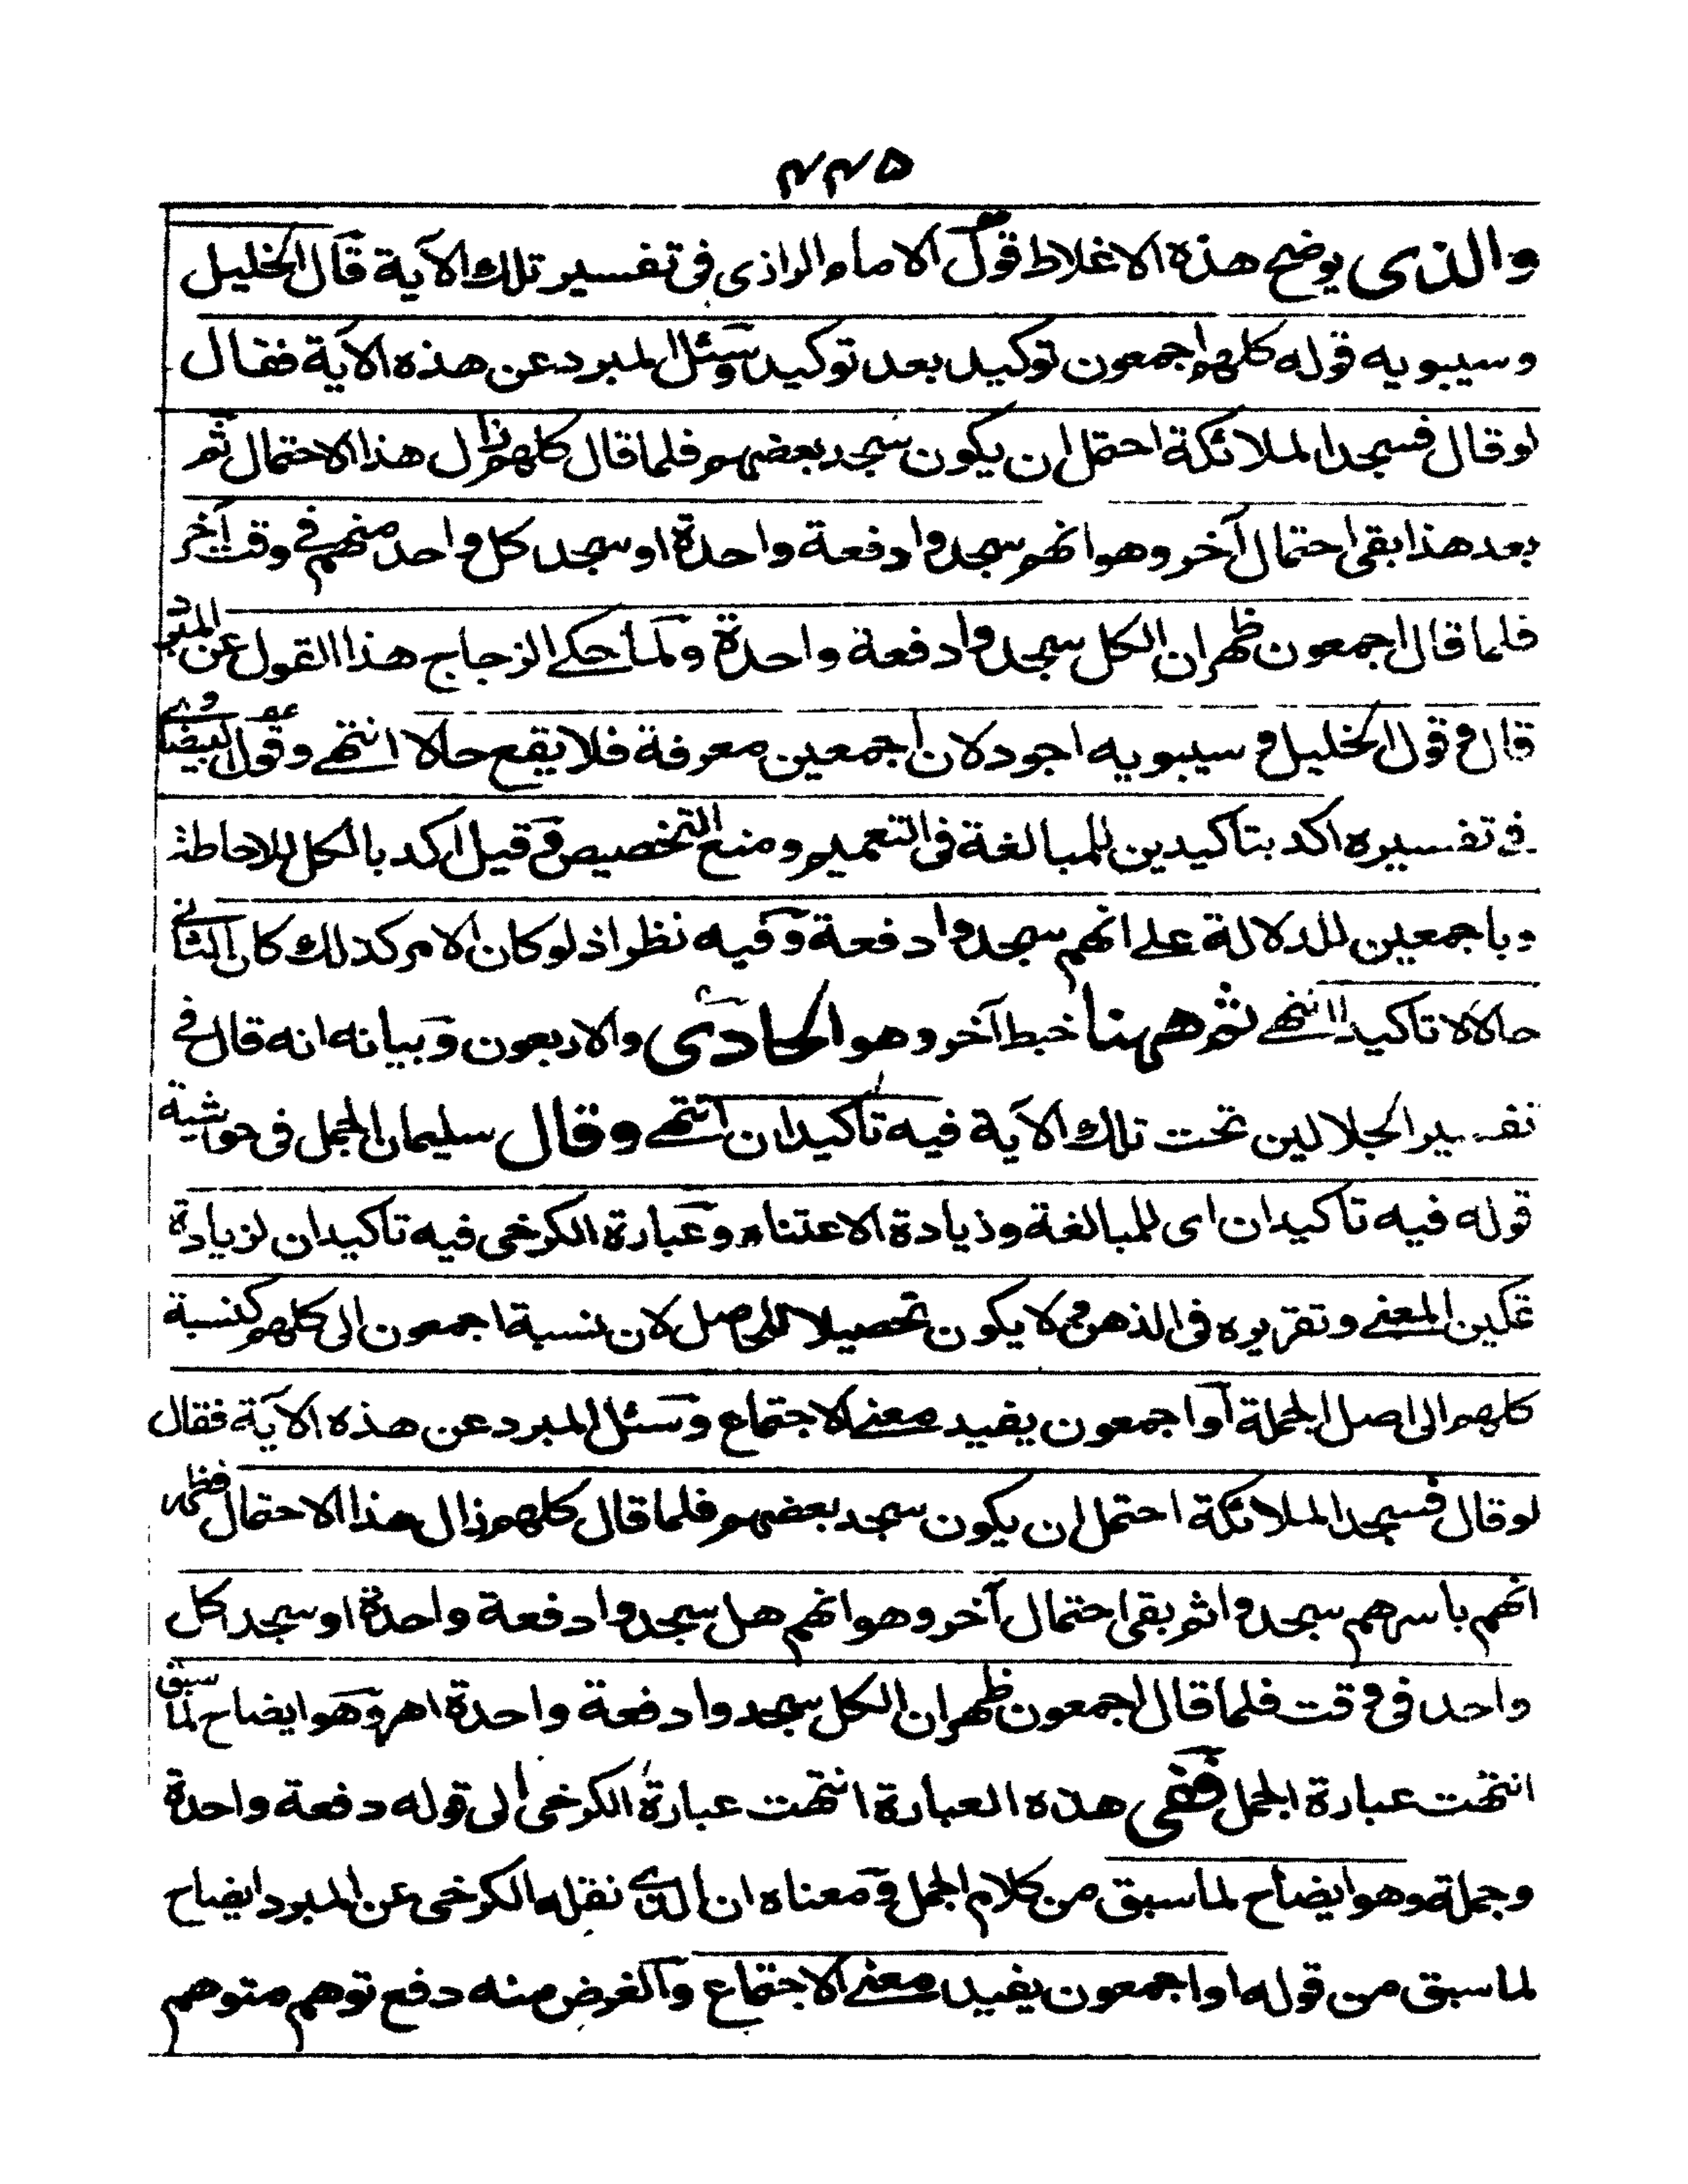 ۴۴۵
والذى يوضح هذه الاغلاط قول الامام الرازى فى تفسير تلك الآية قال الخليل
وسيبويه قوله كلهم اجمعون توكيد بعد توكيد وسئل المبرد عن هذه الآية فقال
لو قال فسجد الملائكة احتمل ان يكون سجد بعضهم فلما قال كلهم زال هذا الاحتمال ثم
بعد هذا بقى احتمال آخر وهو انهم سجدوا دفعة واحدة او سجد كل واحد منهم فى وقت آخر
فلما قال اجمعون ظهر ان الكل سجدوا دفعة واحدة ولما حكے الزجاج هذا القول عن المبرد
قال وقول الخليل وسيبويه اجود لان اجمعين معرفة فلا يقع حالا انتهے وقول البيضاوے
فى تفسيره اكد بتاكيدين للمبالغة فى التعميم ومنع التخصيص وقيل اكد بالكل للاحاطة
وباجمعين للدلالة علے انهم سجدوا دفعة وفيه نظر اذ لو كان الامر كذلك كان الثانے
حالا لا تاكيدا انتهے ثم ههنا خبط آخر وهو الحادى والاربعون وبيانه انه قال فے
تفسير الجلالين تحت تلك الآية فيه تاكيدان انتهے وقال سليمان الجمل فى حواشية
قوله فيه تاكيدان اى للمبالغة وزيادة الاعتناء وعبارة الكرخى فيه تاكيدان لزيادة
تمكين المعنے وتقريره فى الذهن ولا يكون تحصيلا للحاصل لان نسبة اجمعون الى كلهم كنسبة
كلهم الى اصل الجملة او اجمعون يفيد معنے الاجتماع وسئل المبرد عن هذه الآية فقال
لو قال فسجد الملائكة احتمل ان يكون سجد بعضهم فلما قال كلهم زال هذا الاحتمال فظهر
انهم باسرهم سجدوا ثم بقى احتمال آخر وهو انهم هل سجدوا دفعة واحدة او سجد كل
واحد فى وقت فلما قال اجمعون ظهر ان الكل سجدوا دفعة واحدة اهـ وهو ايضاح لما سبق
انتهت عبارة الجمل ففى هذه العبارة انتهت عبارة الكرخى الى قوله دفعة واحدة
وجملة وهو ايضاح لما سبق من كلام الجمل ومعناه ان الذے نقله الكرخى عن المبرد ايضاح
لما سبق من قوله او اجمعون يفيد معنے الاجتماع والغرض منه دفع توهم متوهم